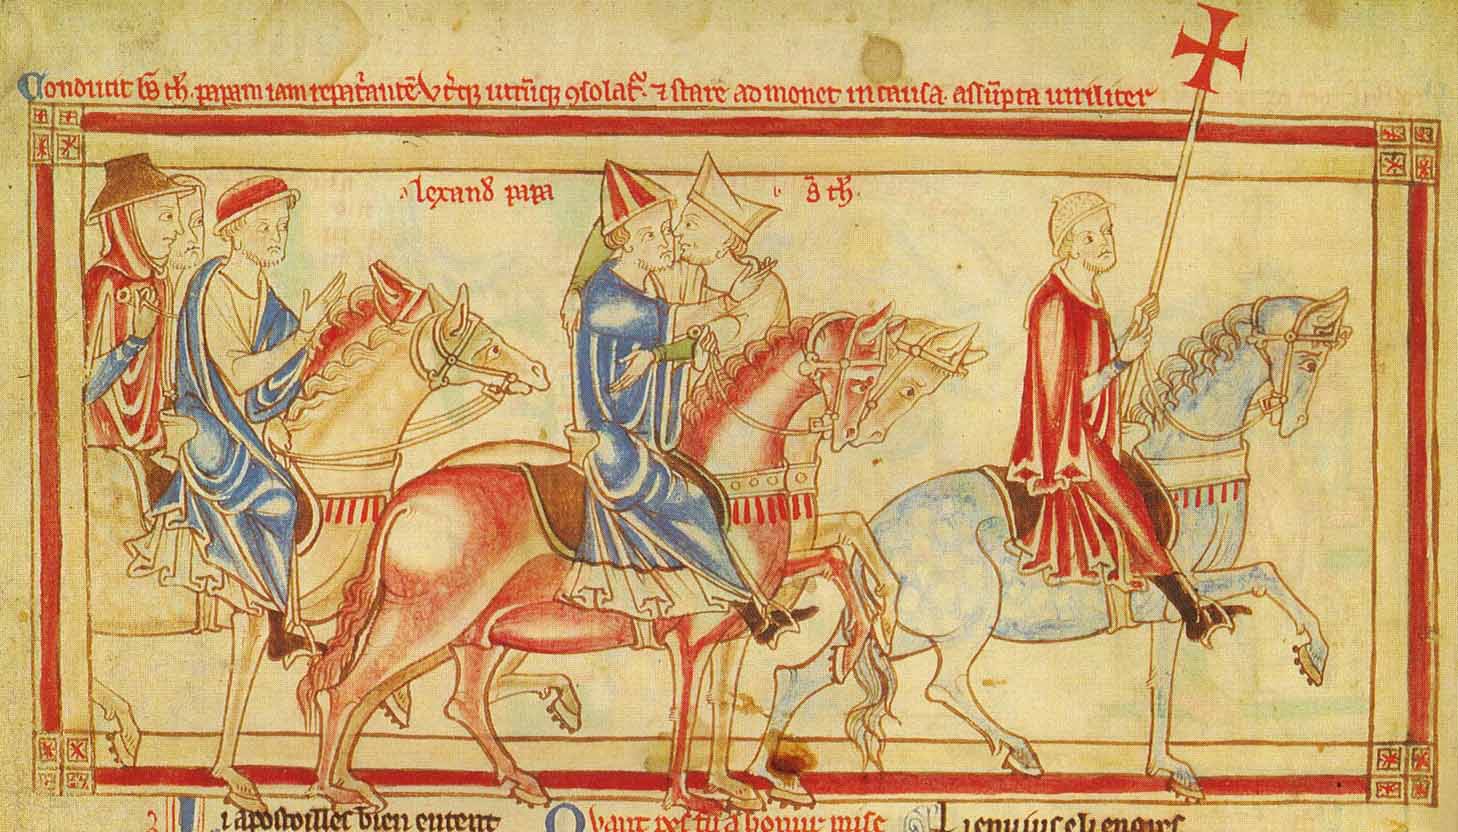 Conducit b̄s th̄. papam iam repat̉antē Vt̉q; utrūq; ꝯsolat̉. ⁊ stare admonet in causa. assūpta uiriliter
alexand̉ papa
b s̄ th̄.
Li apostoilles bien entent
Quant a honur mise
Li enuius e li engres